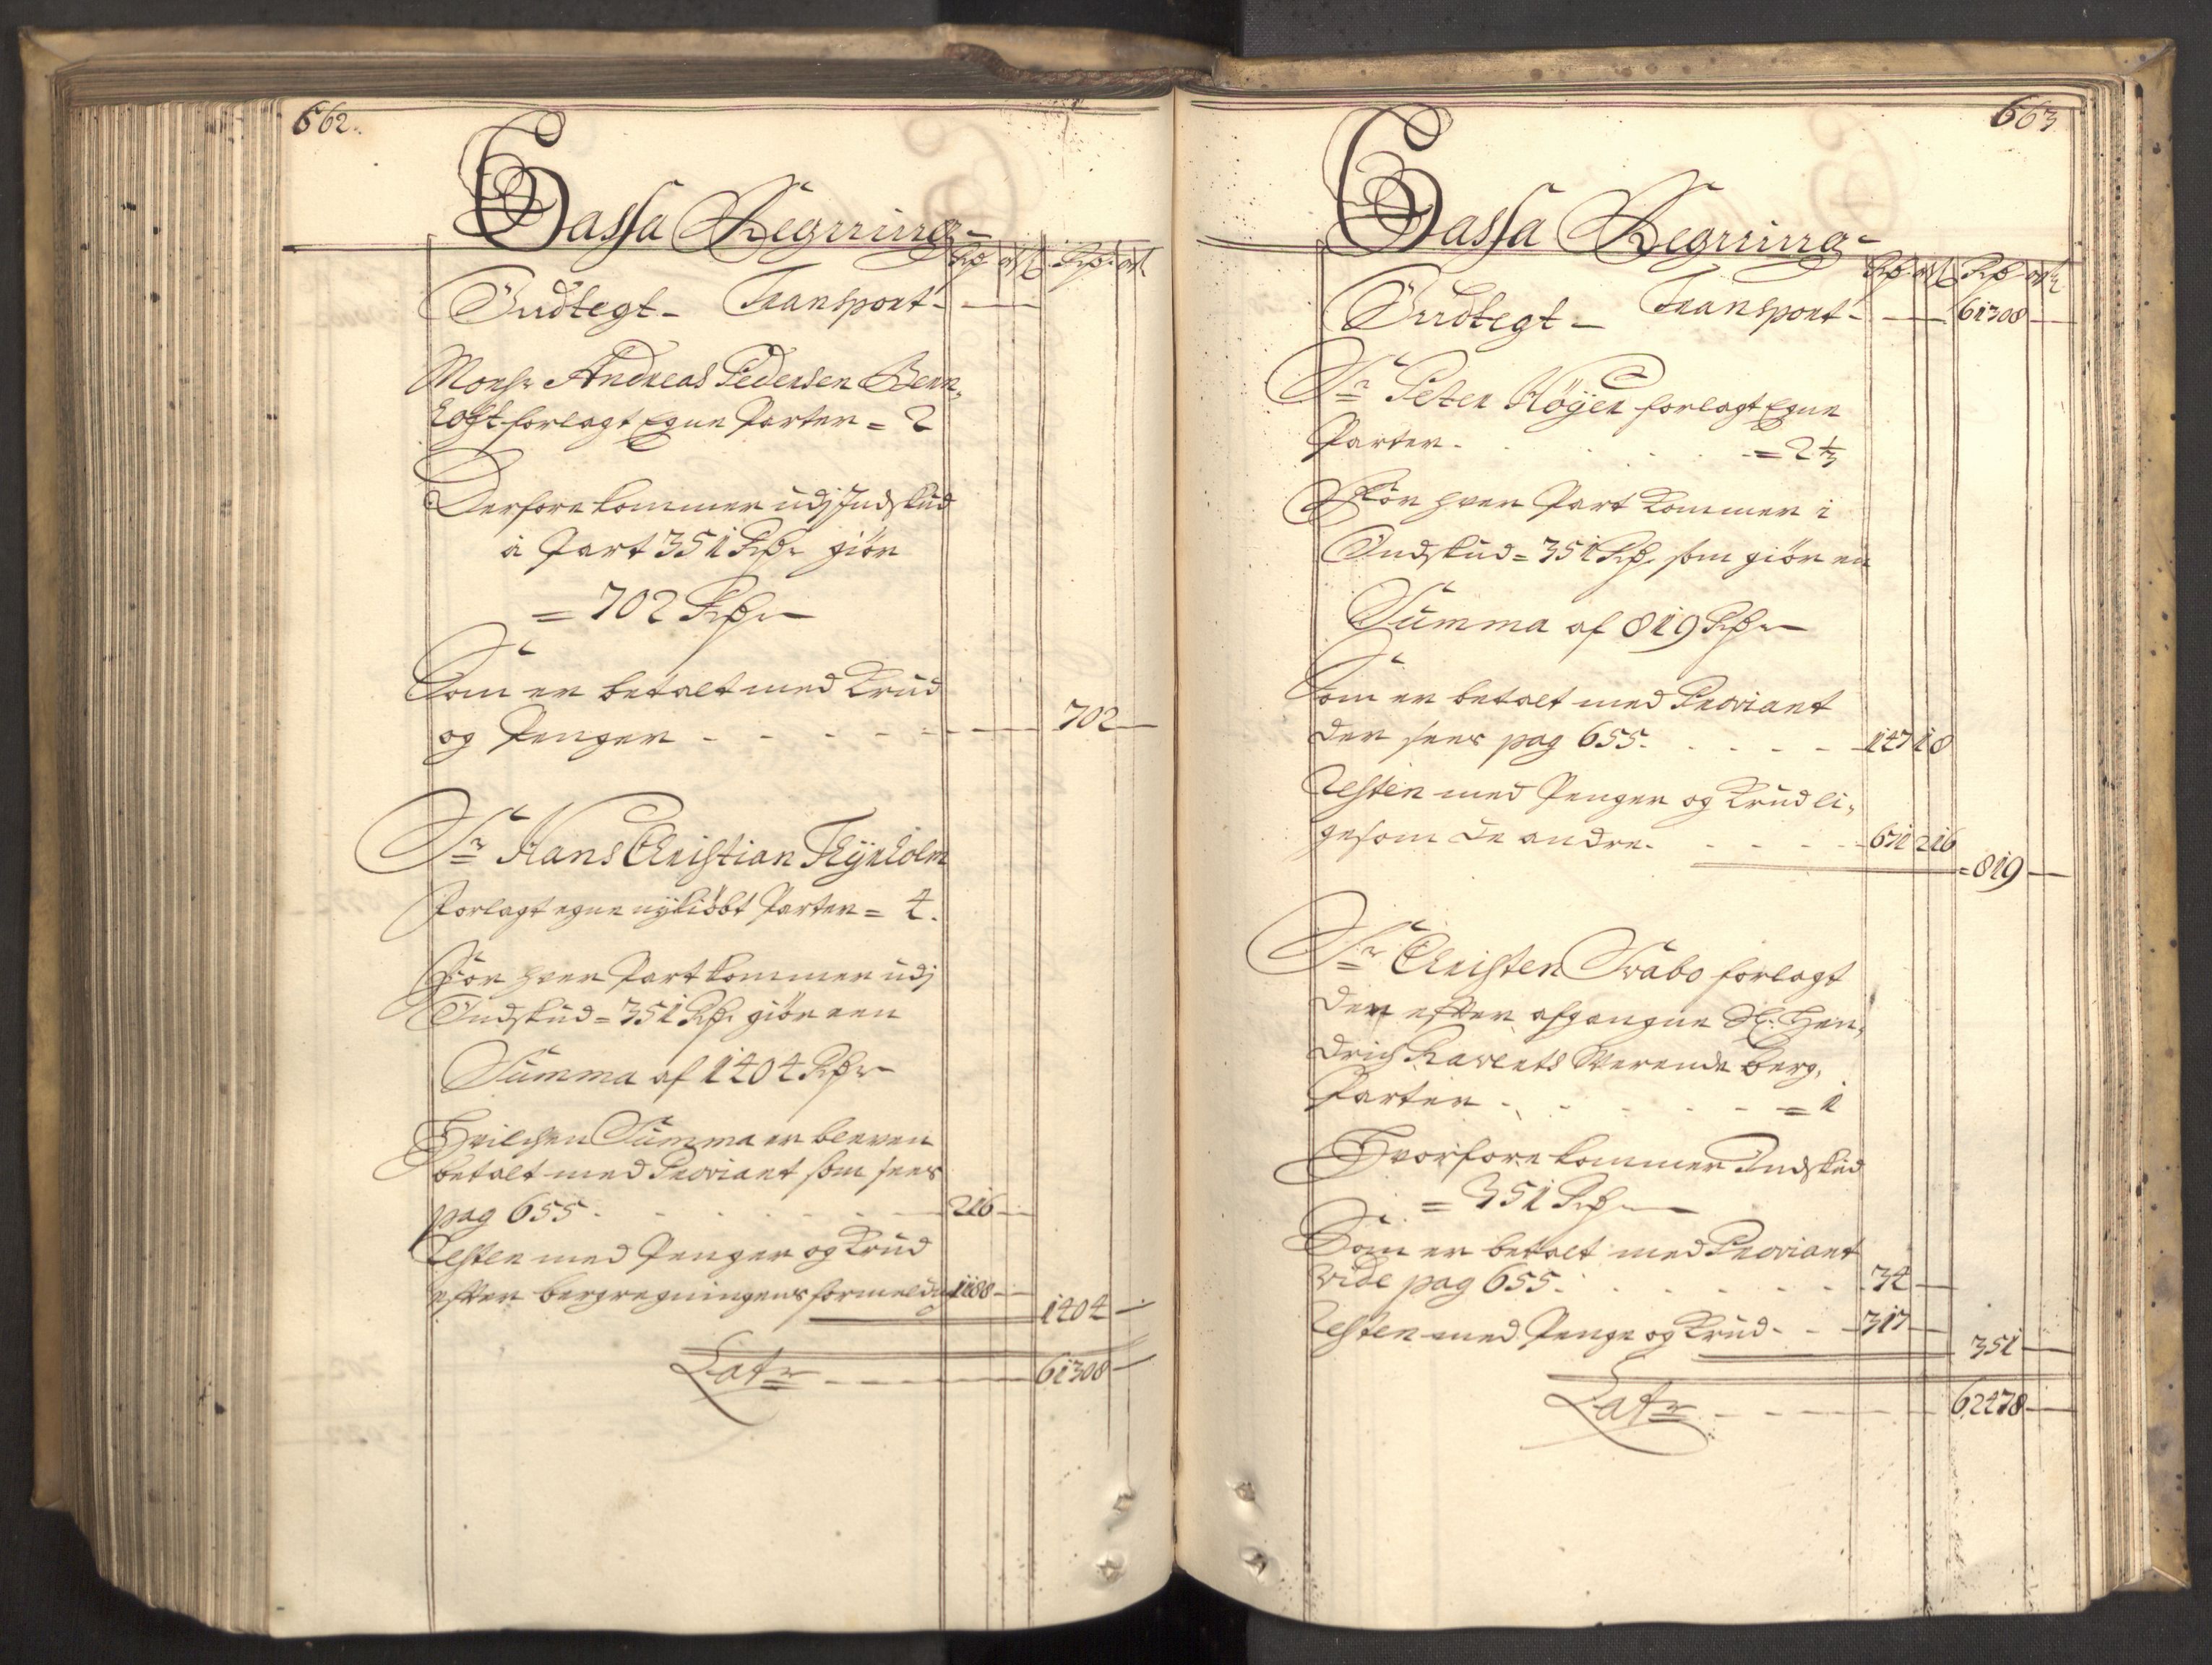 662.
Cassa Regning
Rdr ort ß Rdr ort
Indtegt – Transport –
Monsr Andreas Pedersen Bern,
hoft forlagt Egne Parter = 2
Derfore kommer udj Indskud
à Part 351 Rdr giör
= 702 Rdr
Som er betalt med Krud
og Penger - - - - - 702 –
Sr Hans Christian Thÿholm
Forlagt egne nÿkiöbt Parter = 4.
For hver Part kommer udj
Indskud = 351 Rdr giör een
Summa af 1404 Rdr
Hvilchen Summa er bleven
betalt med Proviant som sees
pag 655 - - - - - 216 –
Resten med Penger og Krud
efter bergregningens formelding 1188 –
1404 –
Latr - - - - 61308 –
663
Cassa Regning
Rdr ort ß Rdr ort
Indtegt – Transport – 61308 –
Sr Peter Höyer forlagt Egne
Parter - - - - = 2 1/3
For hver Part kommer i
Indskud = 351 Rdr som giör en
Summa af 819 Rdr
Som er betalt med Proviant
der sees pag 655. - - - - 147 1 8
Resten med Penger og Krud li,
gesom de andre - - - - 671 2 16
= 819 –
Sr Christen Svabo forlagt
den efter afgangne Sl. Hen,
drich Haverts Værende berg,
Parter - - - - = 1
Hvorfore kommer Indskud
= 351 Rdr
Som er betalt med Proviant
vide pag 655. - - - - 34 –
Resten med Penge og Krud - - 317 –
351 –
Latr - - - - 62478 –